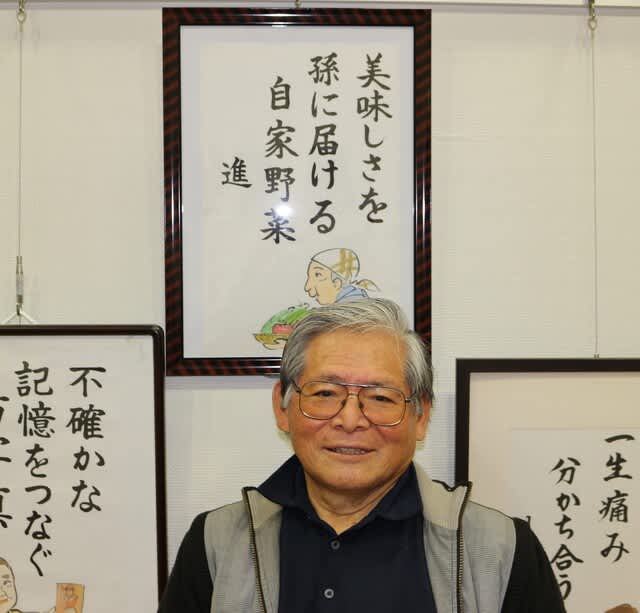 美味しさを
孫に届ける
自家野菜
進
不確かな
記憶をつなぐ
一生痛み
分かち合う